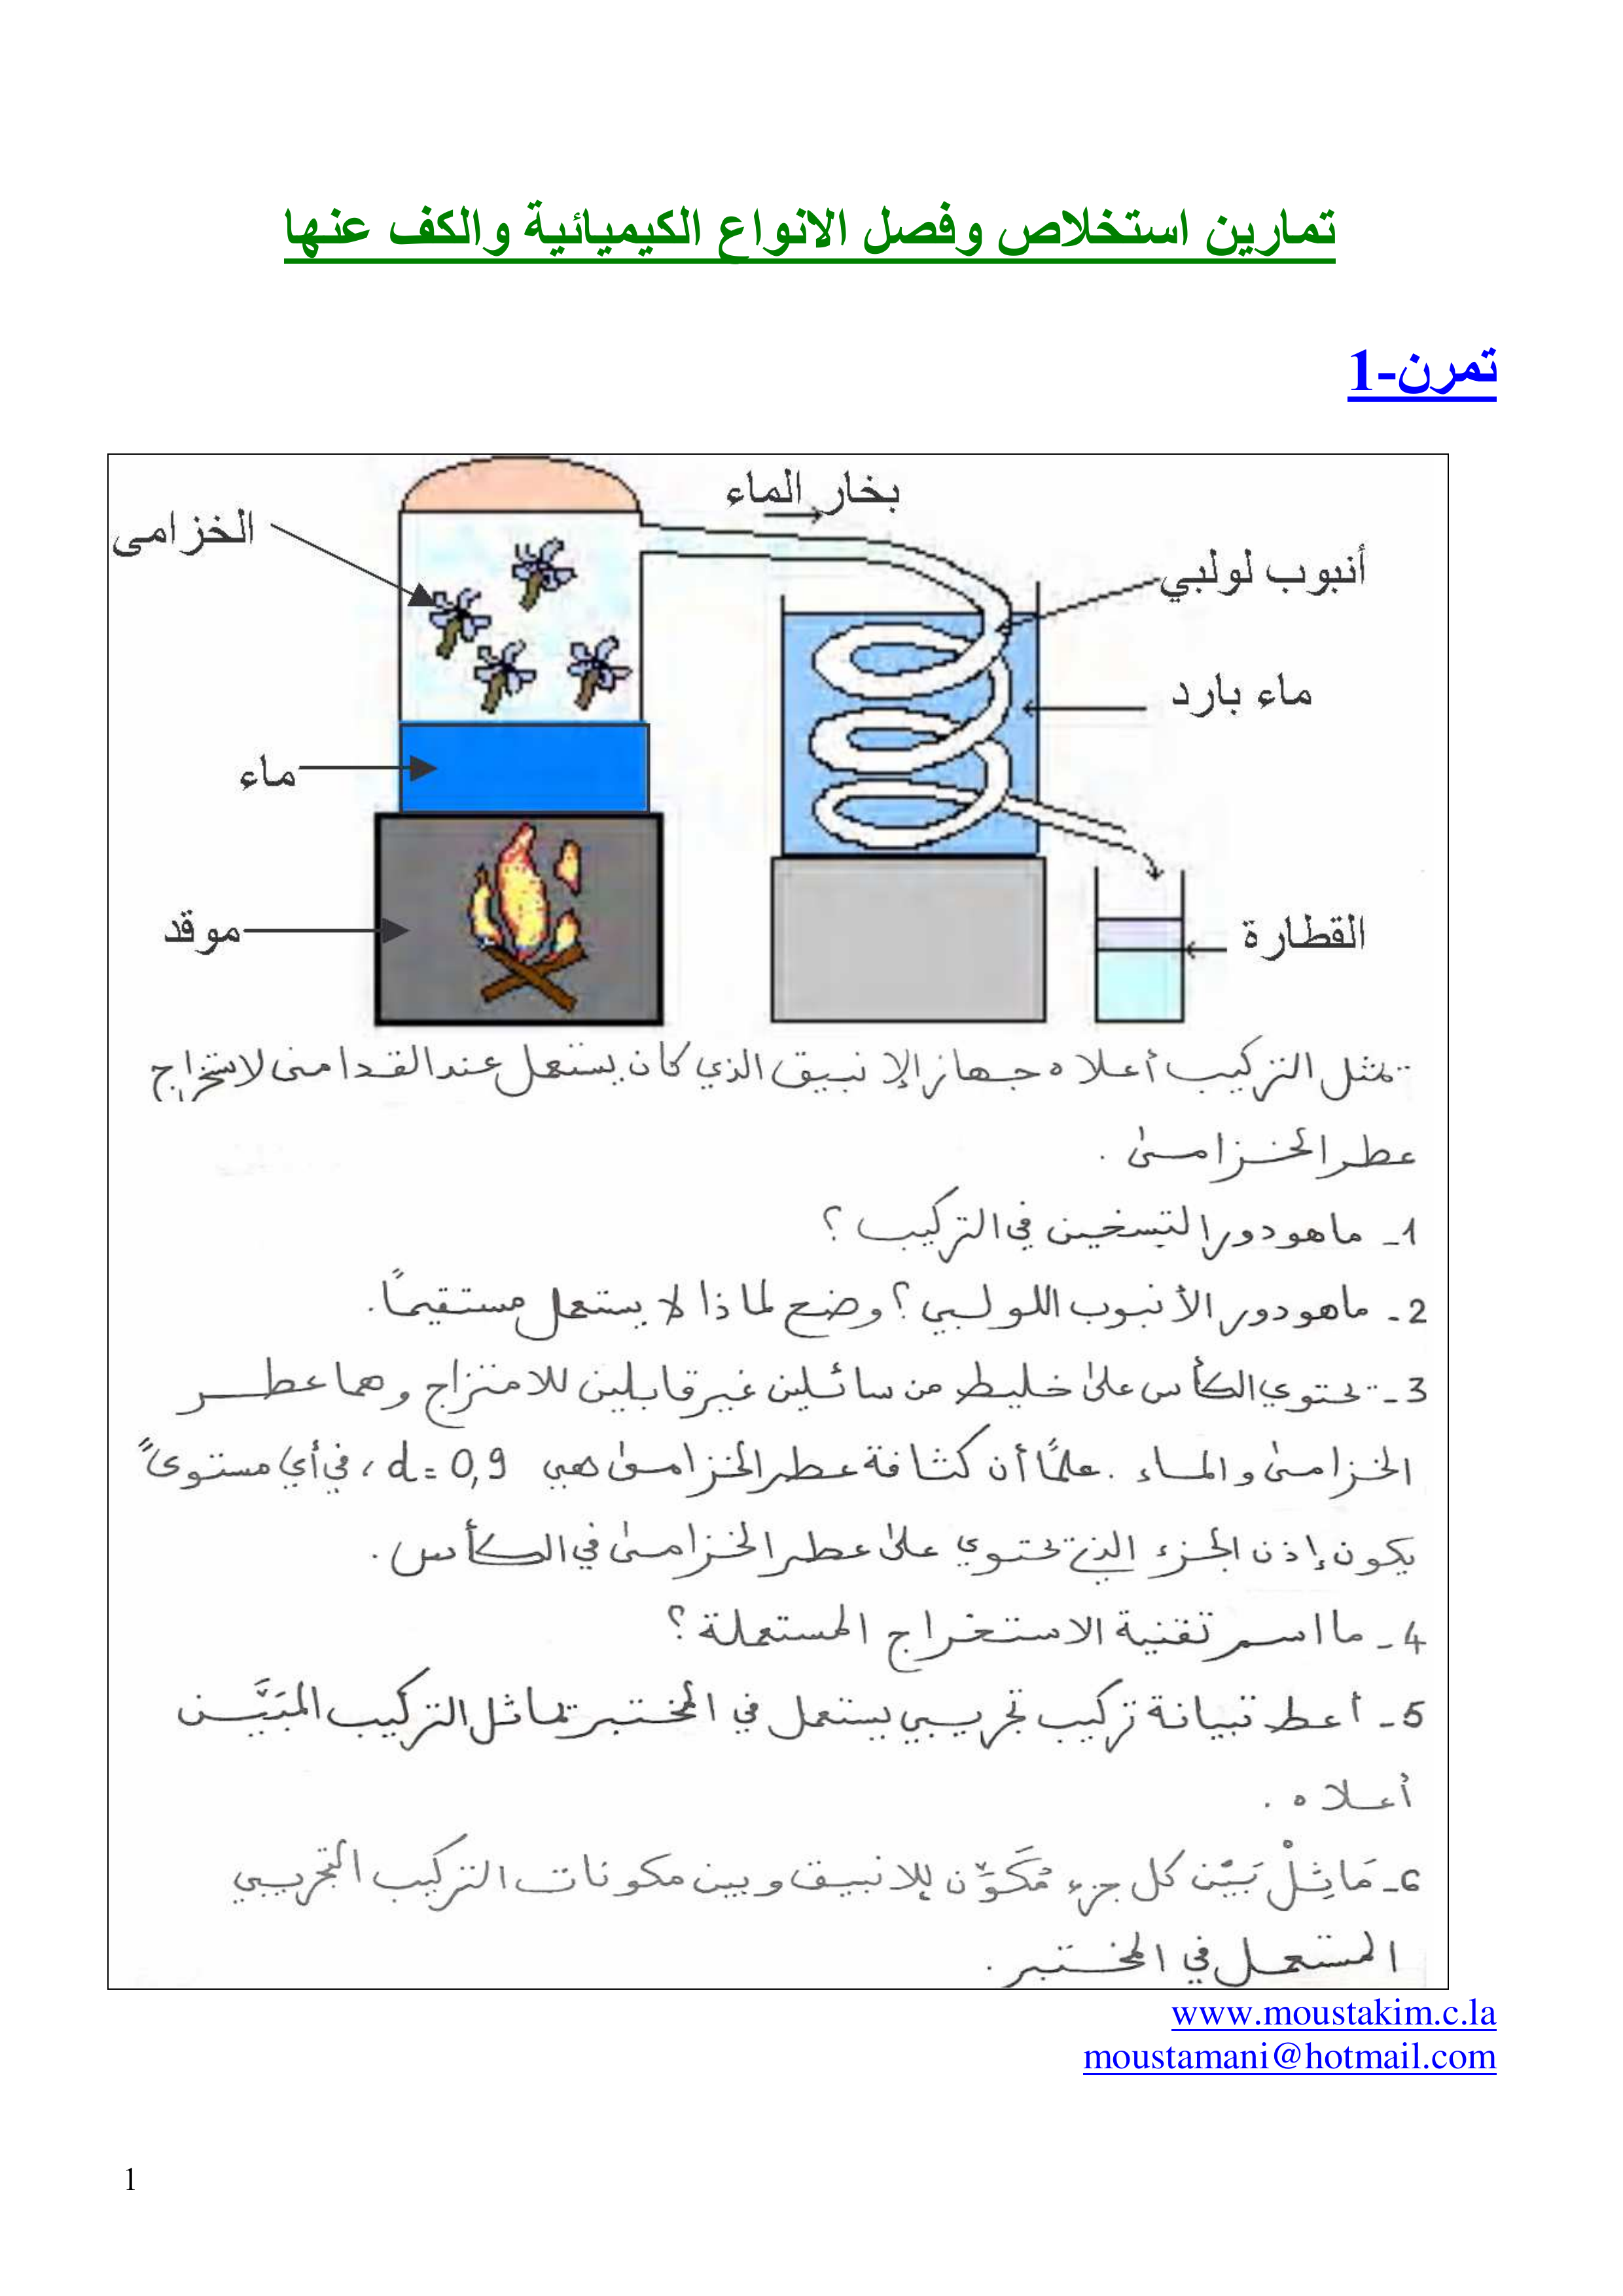 تمارين استخلاص وفصل الانواع الكيميائية والكف عنها
تمرن-1
بخار الماء
الخزامى
أنبوب لولبي
ماء بارد
ماء
موقد
القطارة
تمثل التركيب أعلاه جهاز الإنبيق الذي كان يستعمل عند القدامى لاستخراج
عطر الخزامى .
1- ماهو دور التسخين في التركيب ؟
2- ماهو دور الأنبوب اللولبي ؟ وضح لماذا لا يستعمل مستقيمًا.
3- تحتوي الكأس على خليط من سائلين غير قابلين للامتزاج وهما عطر
الخزامى والماء . علمًا أن كثافة عطر الخزامى هي d = 0,9 ، في أي مستوىً
يكون إذن الجزء الذي تحتوي على عطر الخزامى في الكأس .
4- ما اسم تقنية الاستخراج المستعملة ؟
5- أعط تبيانة تركيب تجريبي يستعمل في المختبر تماثل التركيب المبَيَّن
أعلاه .
6- مَاثِلْ بَيْن كل جزء مُكَوِّن للانبيق وبين مكونات التركيب التجريبي
المستعمل في المختبر .
www.moustakim.c.la
moustamani@hotmail.com
1